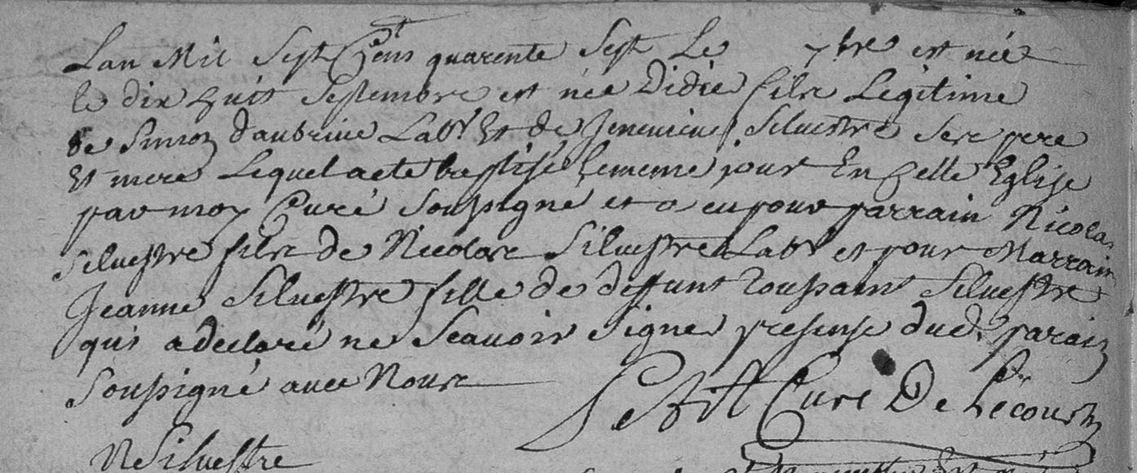 Lan Mil Sept Cens quarente Sept Le 7bre est née
le dix huit Septembre est née Didié fils Légitime
de Simon daubrive Labr Et de Silvestre Ses pere
Et mere Lequel a ete baptisé le meme jour En Cette Eglise
par moy Curé Soussigné et a eu pour parrain Nicolas
Silvestre fils de Nicolas Silvestre Labr et pour Marraine
Jeanne Silvestre fille de deffunt Toussaint Silvestre
qui a declaré ne Scavoir Signer presense dud. parain
Soussigné avec Nous
Curé De Lécourt
N Silvestre